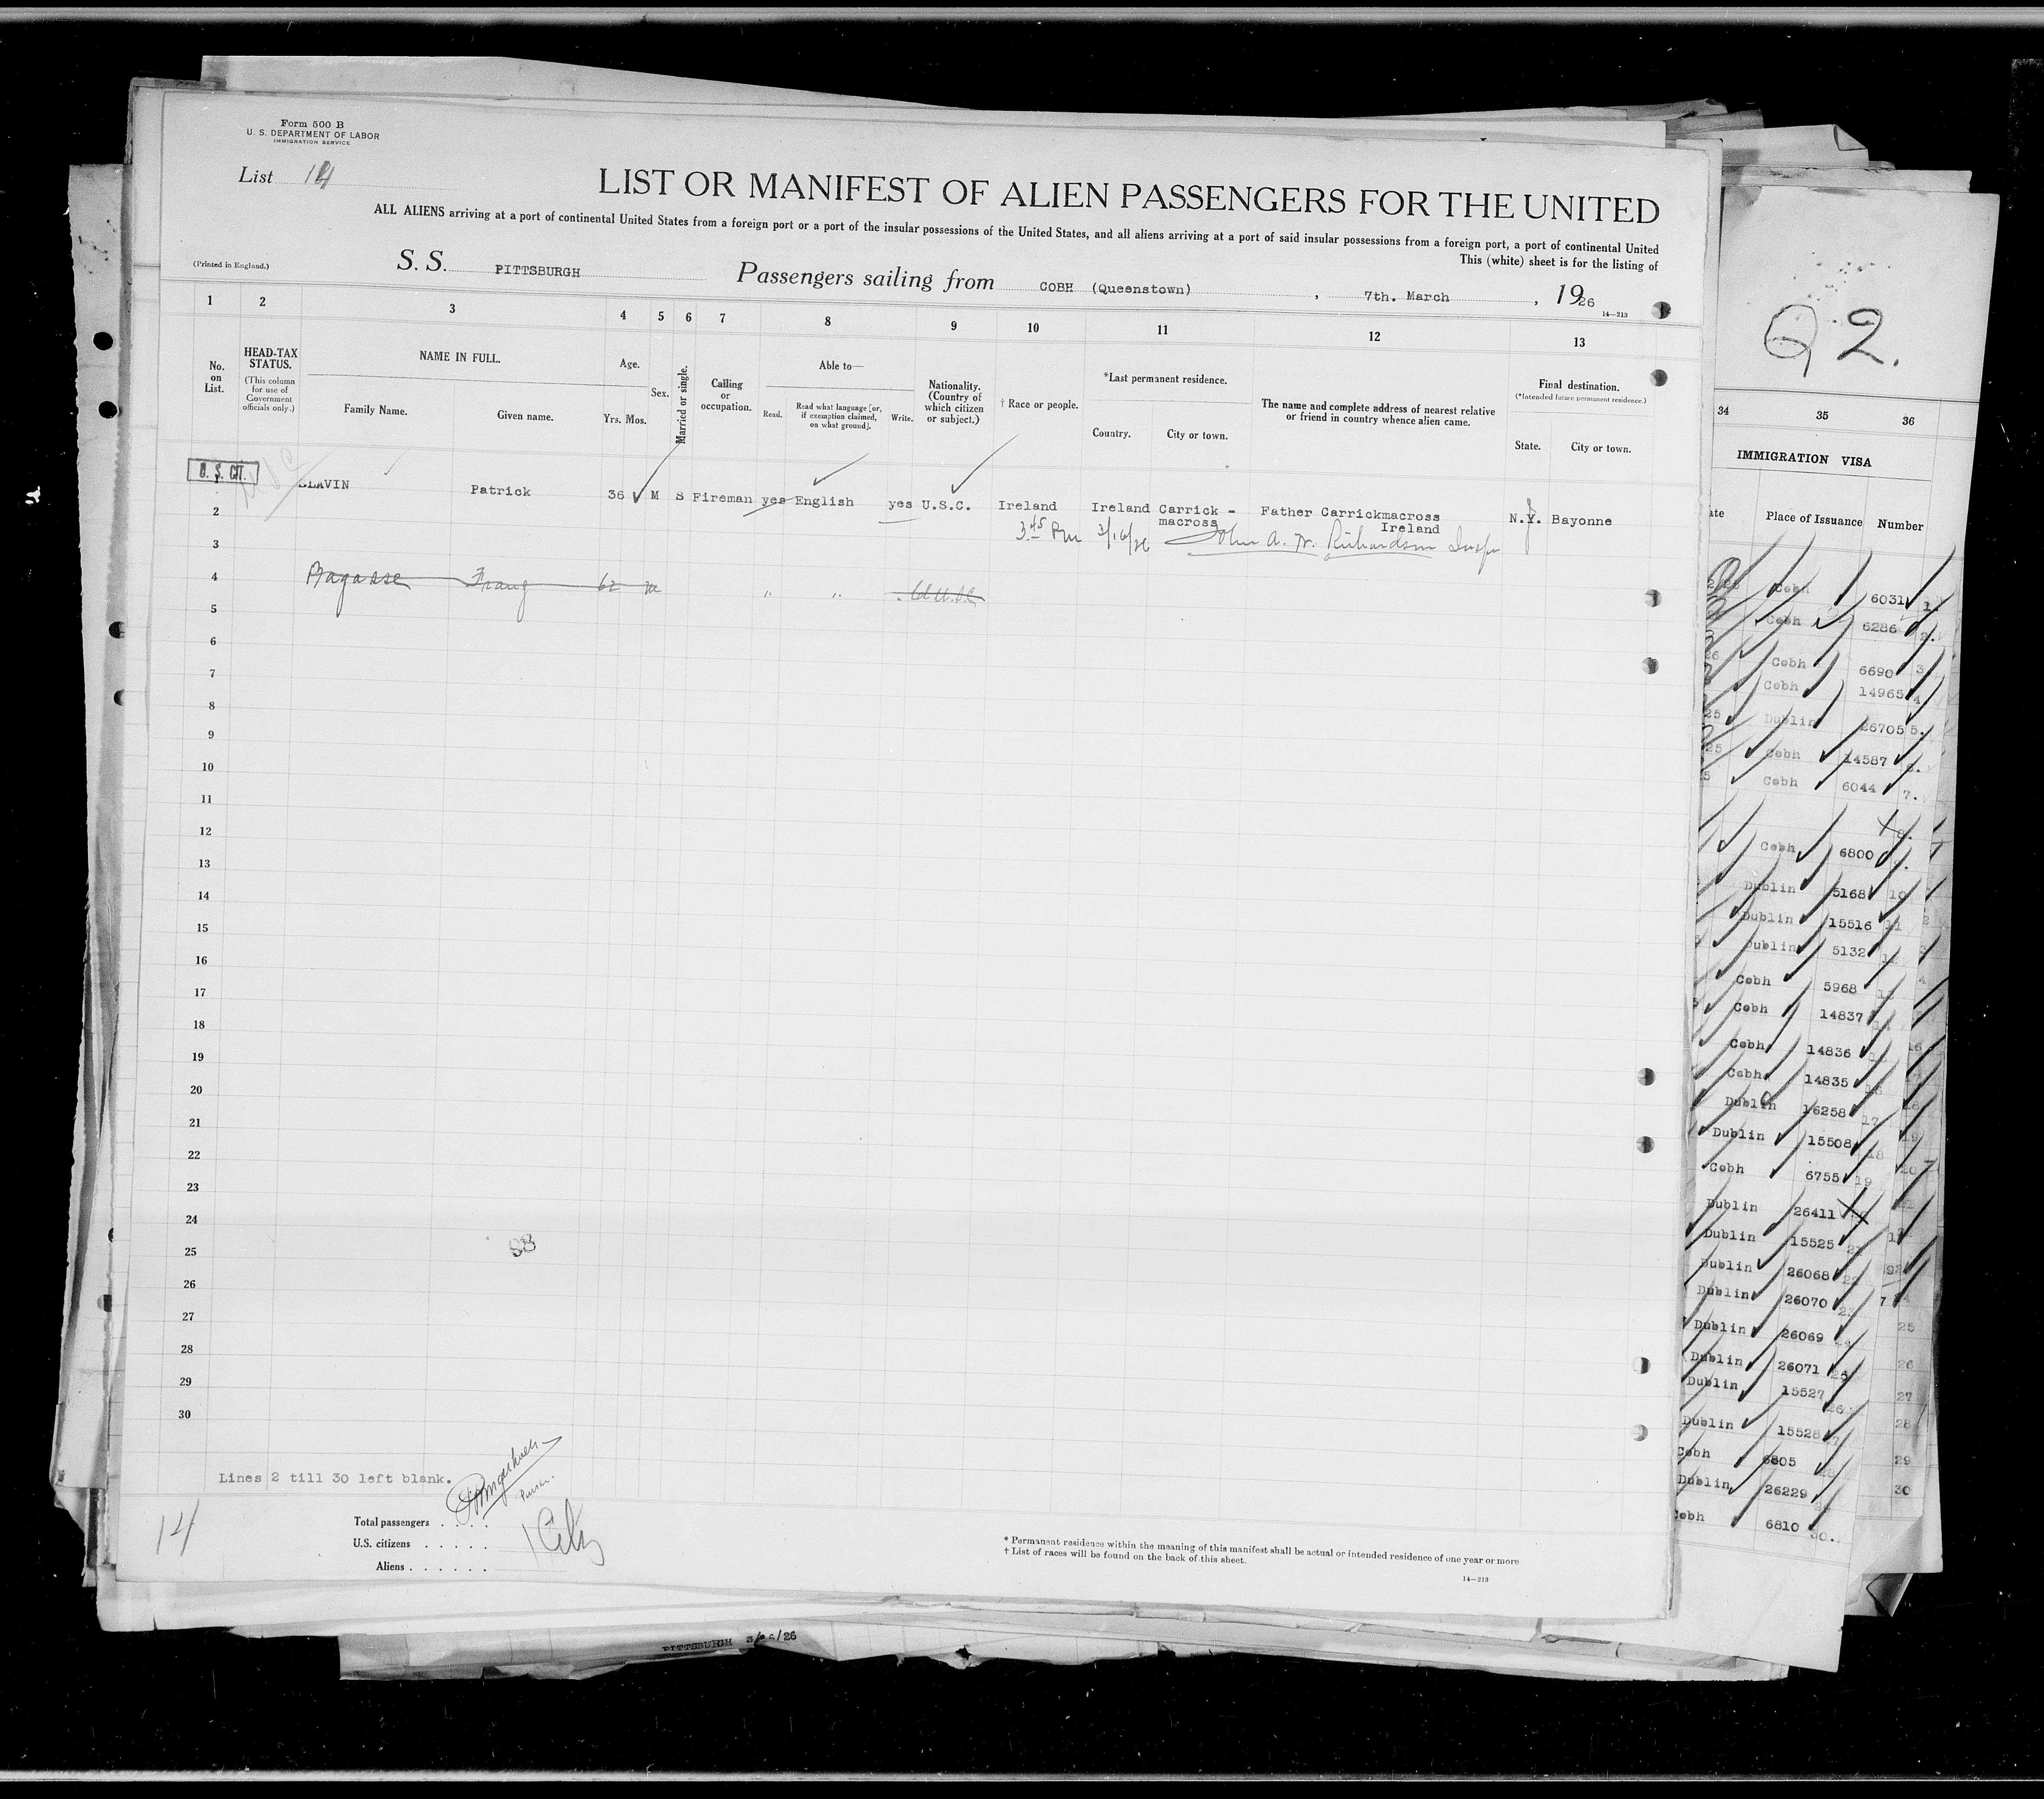 Form 500 B
U. S. DEPARTMENT OF LABOR
IMMIGRATION SERVICE
List 14
LIST OR MANIFEST OF ALIEN PASSENGERS FOR THE UNITED
ALL ALIENS arriving at a port of continental United States from a foreign port or a port of the insular possessions of the United States, and all aliens arriving at a port of said insular possessions from a foreign port, a port of continental United
This (white) sheet is for the listing of
(Printed in England.)
S. S. PITTSBURGH Passengers sailing from COBH (Queenstown) , 7th. March , 1926
14—213
1 2 3 4 5 6 7 8 9 10 11 12 13
No. on List.
HEAD-TAX STATUS.
(This column for use of Government officials only.)
NAME IN FULL.
Family Name. Given name.
Age.
Yrs. Mos.
Sex.
Married or single.
Calling or occupation.
Able to—
Read. Read what language [or, if exemption claimed, on what ground]. Write.
Nationality. (Country of which citizen or subject.)
† Race or people.
*Last permanent residence.
Country. City or town.
The name and complete address of nearest relative or friend in country whence alien came.
Final destination.
(*Intended future permanent residence.)
State. City or town.
U. S. CIT.
SLAVIN Patrick 36 M S Fireman yes English yes U.S.C. Ireland Ireland Carrick - macross Father Carrickmacross Ireland N.Y. Bayonne
2
3.45 Pm 3/16/26 John A. W. Richardson Insp
3
4 62 m " "
5
6
7
8
9
10
11
12
13
14
15
16
17
18
19
20
21
22
23
24
25
26
27
28
29
30
Lines 2 till 30 left blank.
Purser.
14
Total passengers . . . .
U.S. citizens . . . . .
Aliens . . . . . .
* Permanent residence within the meaning of this manifest shall be actual or intended residence of one year or more
† List of races will be found on the back of this sheet.
14—213
PITTSBURGH
2.
34 35 36
IMMIGRATION VISA
Place of Issuance Number
Cobh 6031 1.
Cobh 6286 2.
Cobh 6690 3
Cobh 14965 4
Dublin 26705 5.
Cobh 14587 6.
Cobh 6044 7.
Cobh 6800
Dublin 5168 10
Dublin 15516 11
Dublin 5132
Cobh 5968
Cobh 14837
Cobh 14836
Cobh 14835
Dublin 16258 17
Dublin 15508 18
Cobh 6755 19
Dublin 26411
Dublin 15525
Dublin 26068
Dublin 26070
Dublin 26069
Dublin 26071
Dublin 15527
Dublin 15528
Cobh 6805
Dublin 26229
Cobh 6810 30.
25
26
27
28
29
30